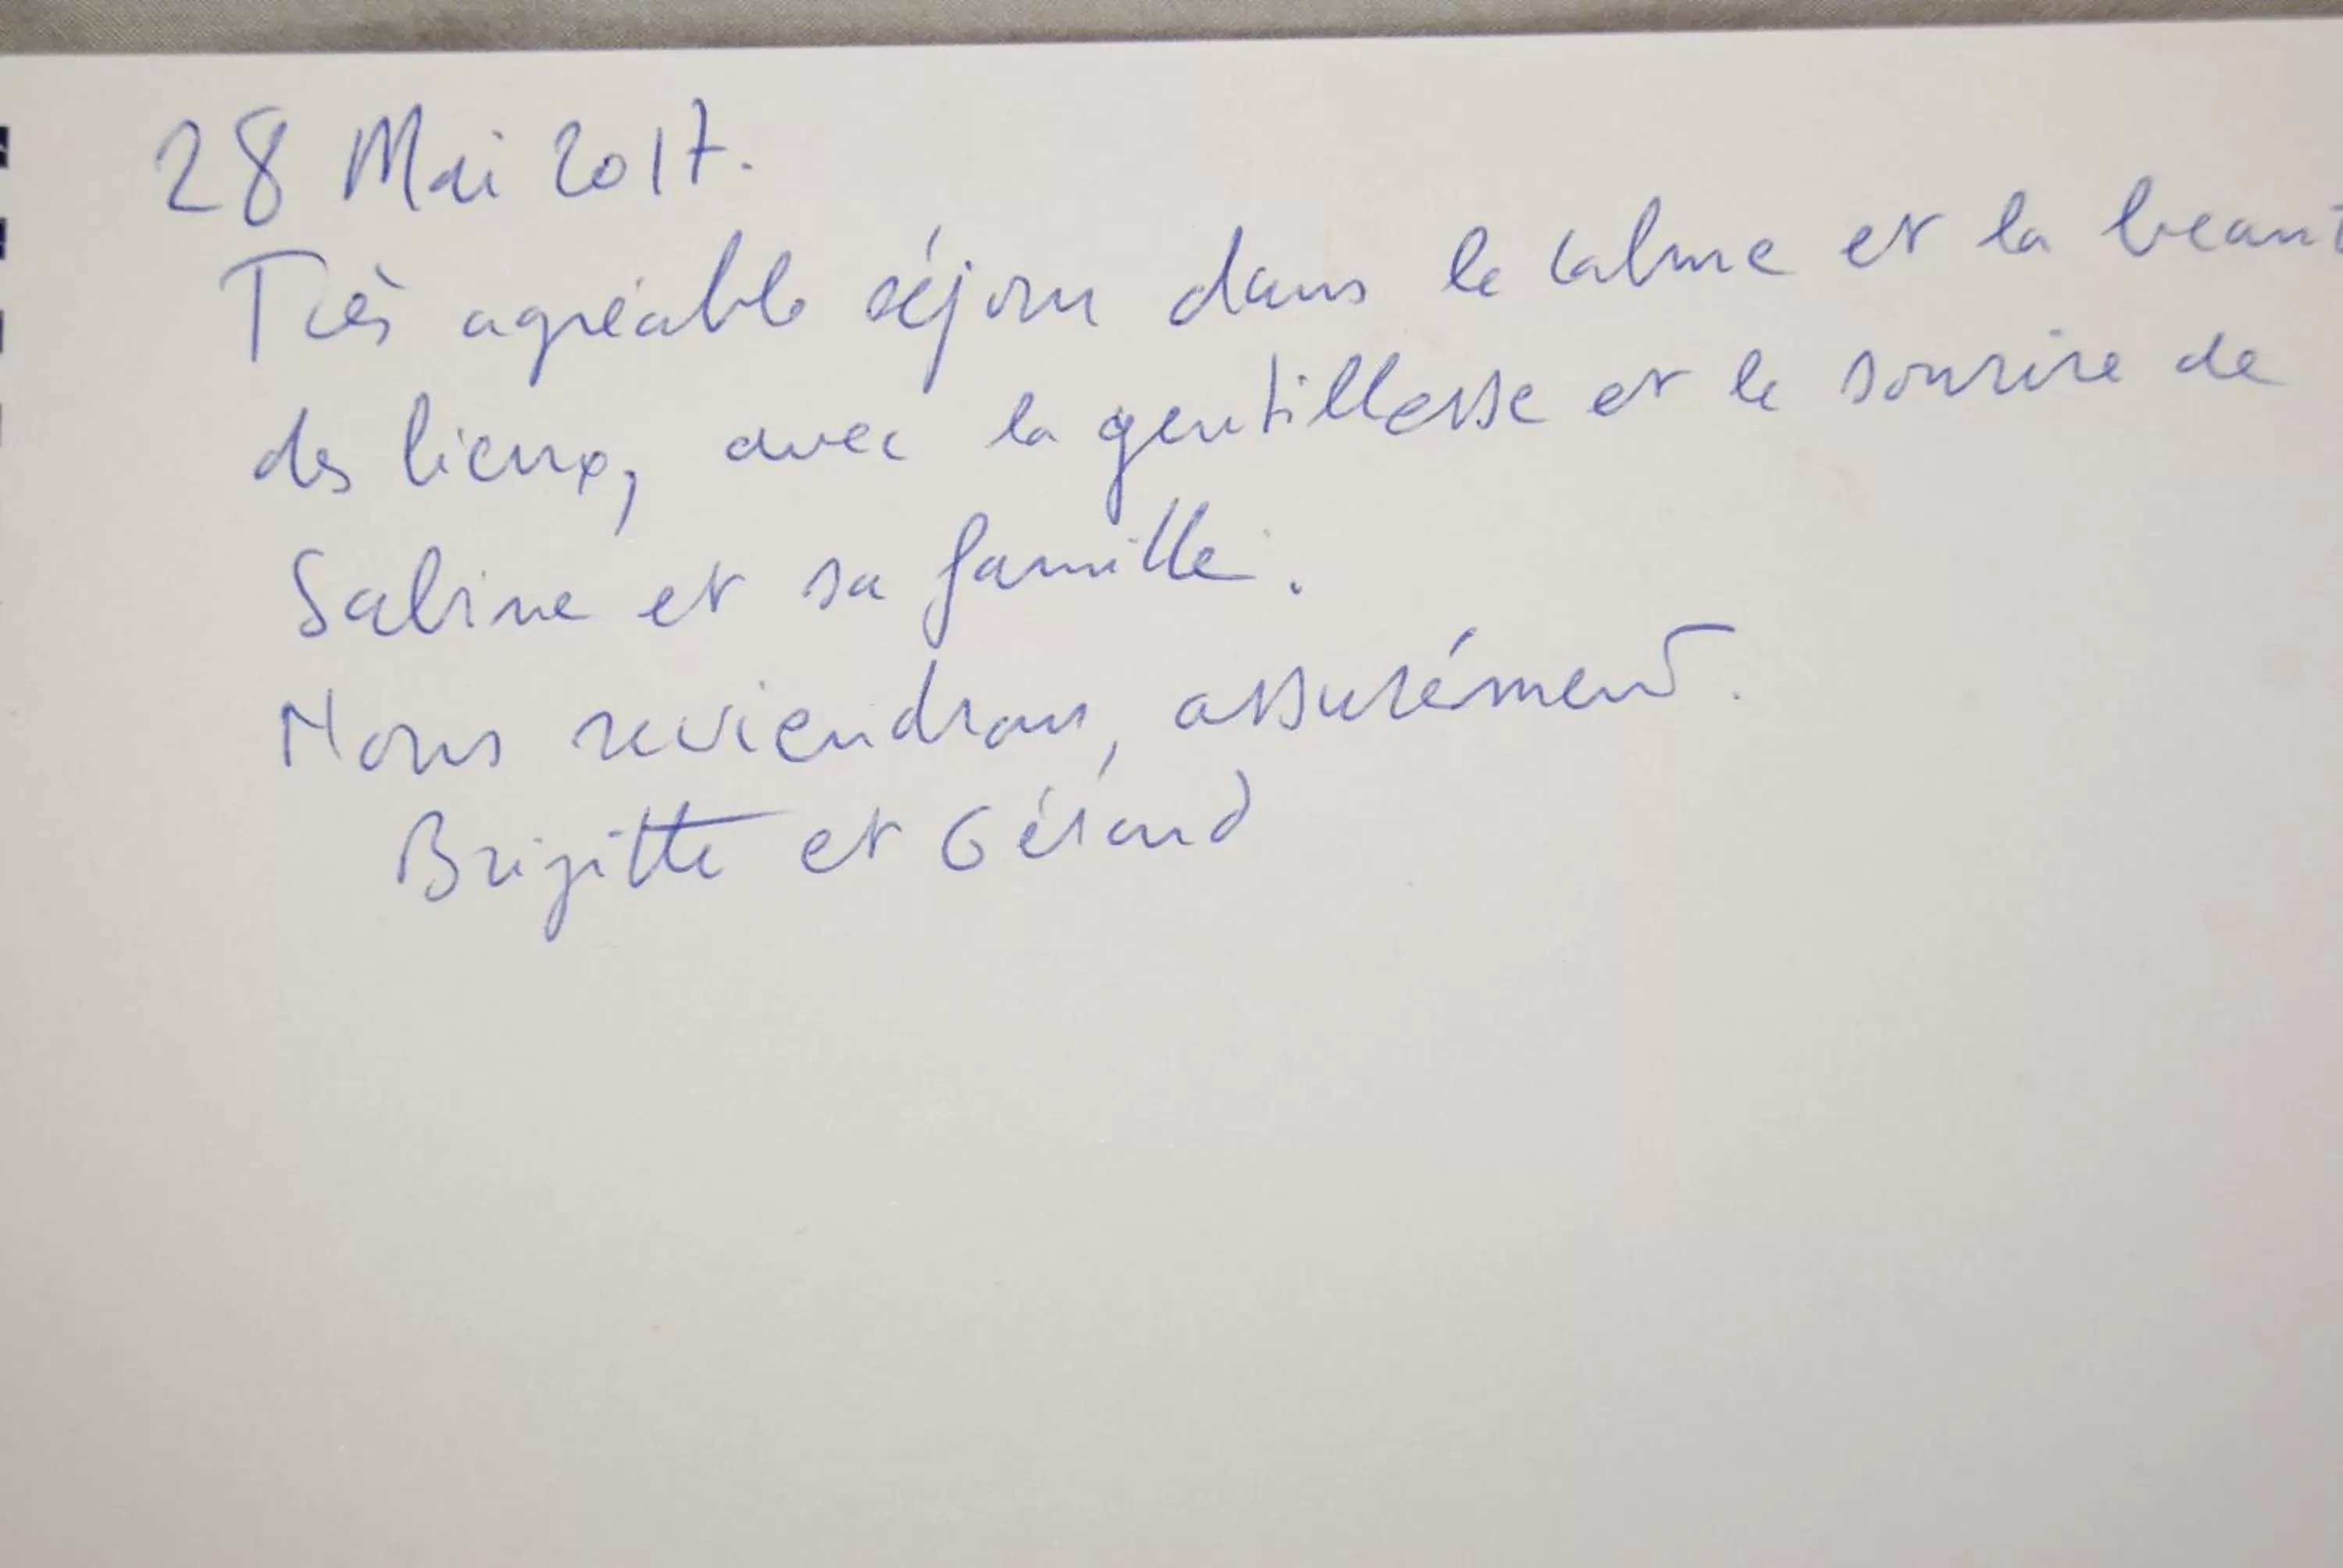 28 Mai 2017.
Très agréable séjour dans le calme et la beaut
des lieux, avec la gentillesse et le sourire de
Sabine et sa famille.
Nous reviendrons, assurément.
Brigitte et Gérard